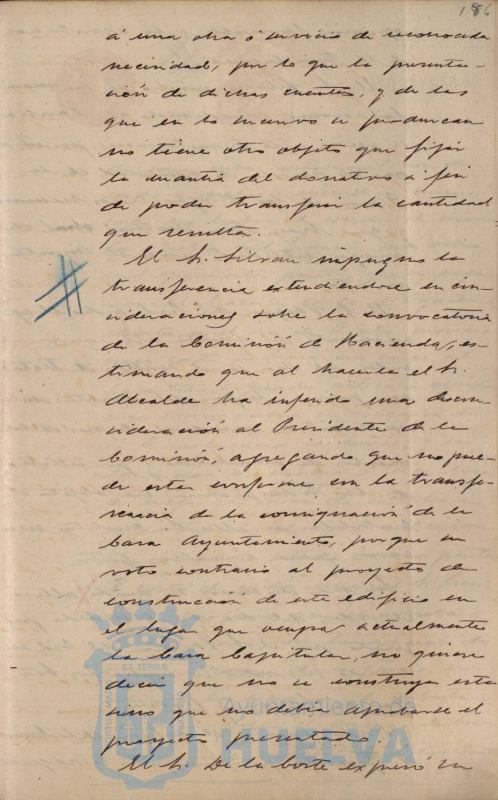 186
á una otra ó servicio de reconocida
necesidad, por lo que la presenta-
ción de dichas cuentas, y de las
que en lo sucesivo se produzcan
no tiene otro objeto que fijar
la cuantía del donativo á fin
de poder transferir la cantidad
que resulta.
El Sr. Silvan impugna la
transferencia extendiendose en con-
sideraciones sobre la convocatoria
de la Comisión de Hacienda, es-
timando que al hacerla el Sr.
Alcalde ha inferido una descon-
sideración al Presidente de la
Comisión, agregando que no pue-
de estar conforme con la transfe-
rencia de la consignación de la
Casa Ayuntamiento, porque su
voto contrario al proyecto de
construcción de este edificio en
el lugar que ocupa actualmente
la Casa Capitular, no quiere
decir que no se construya esta
sino que no debia aprobarse el
proyecto presentado.
El Sr. De la Corte expresó su
Ayuntamiento de
HUELVA